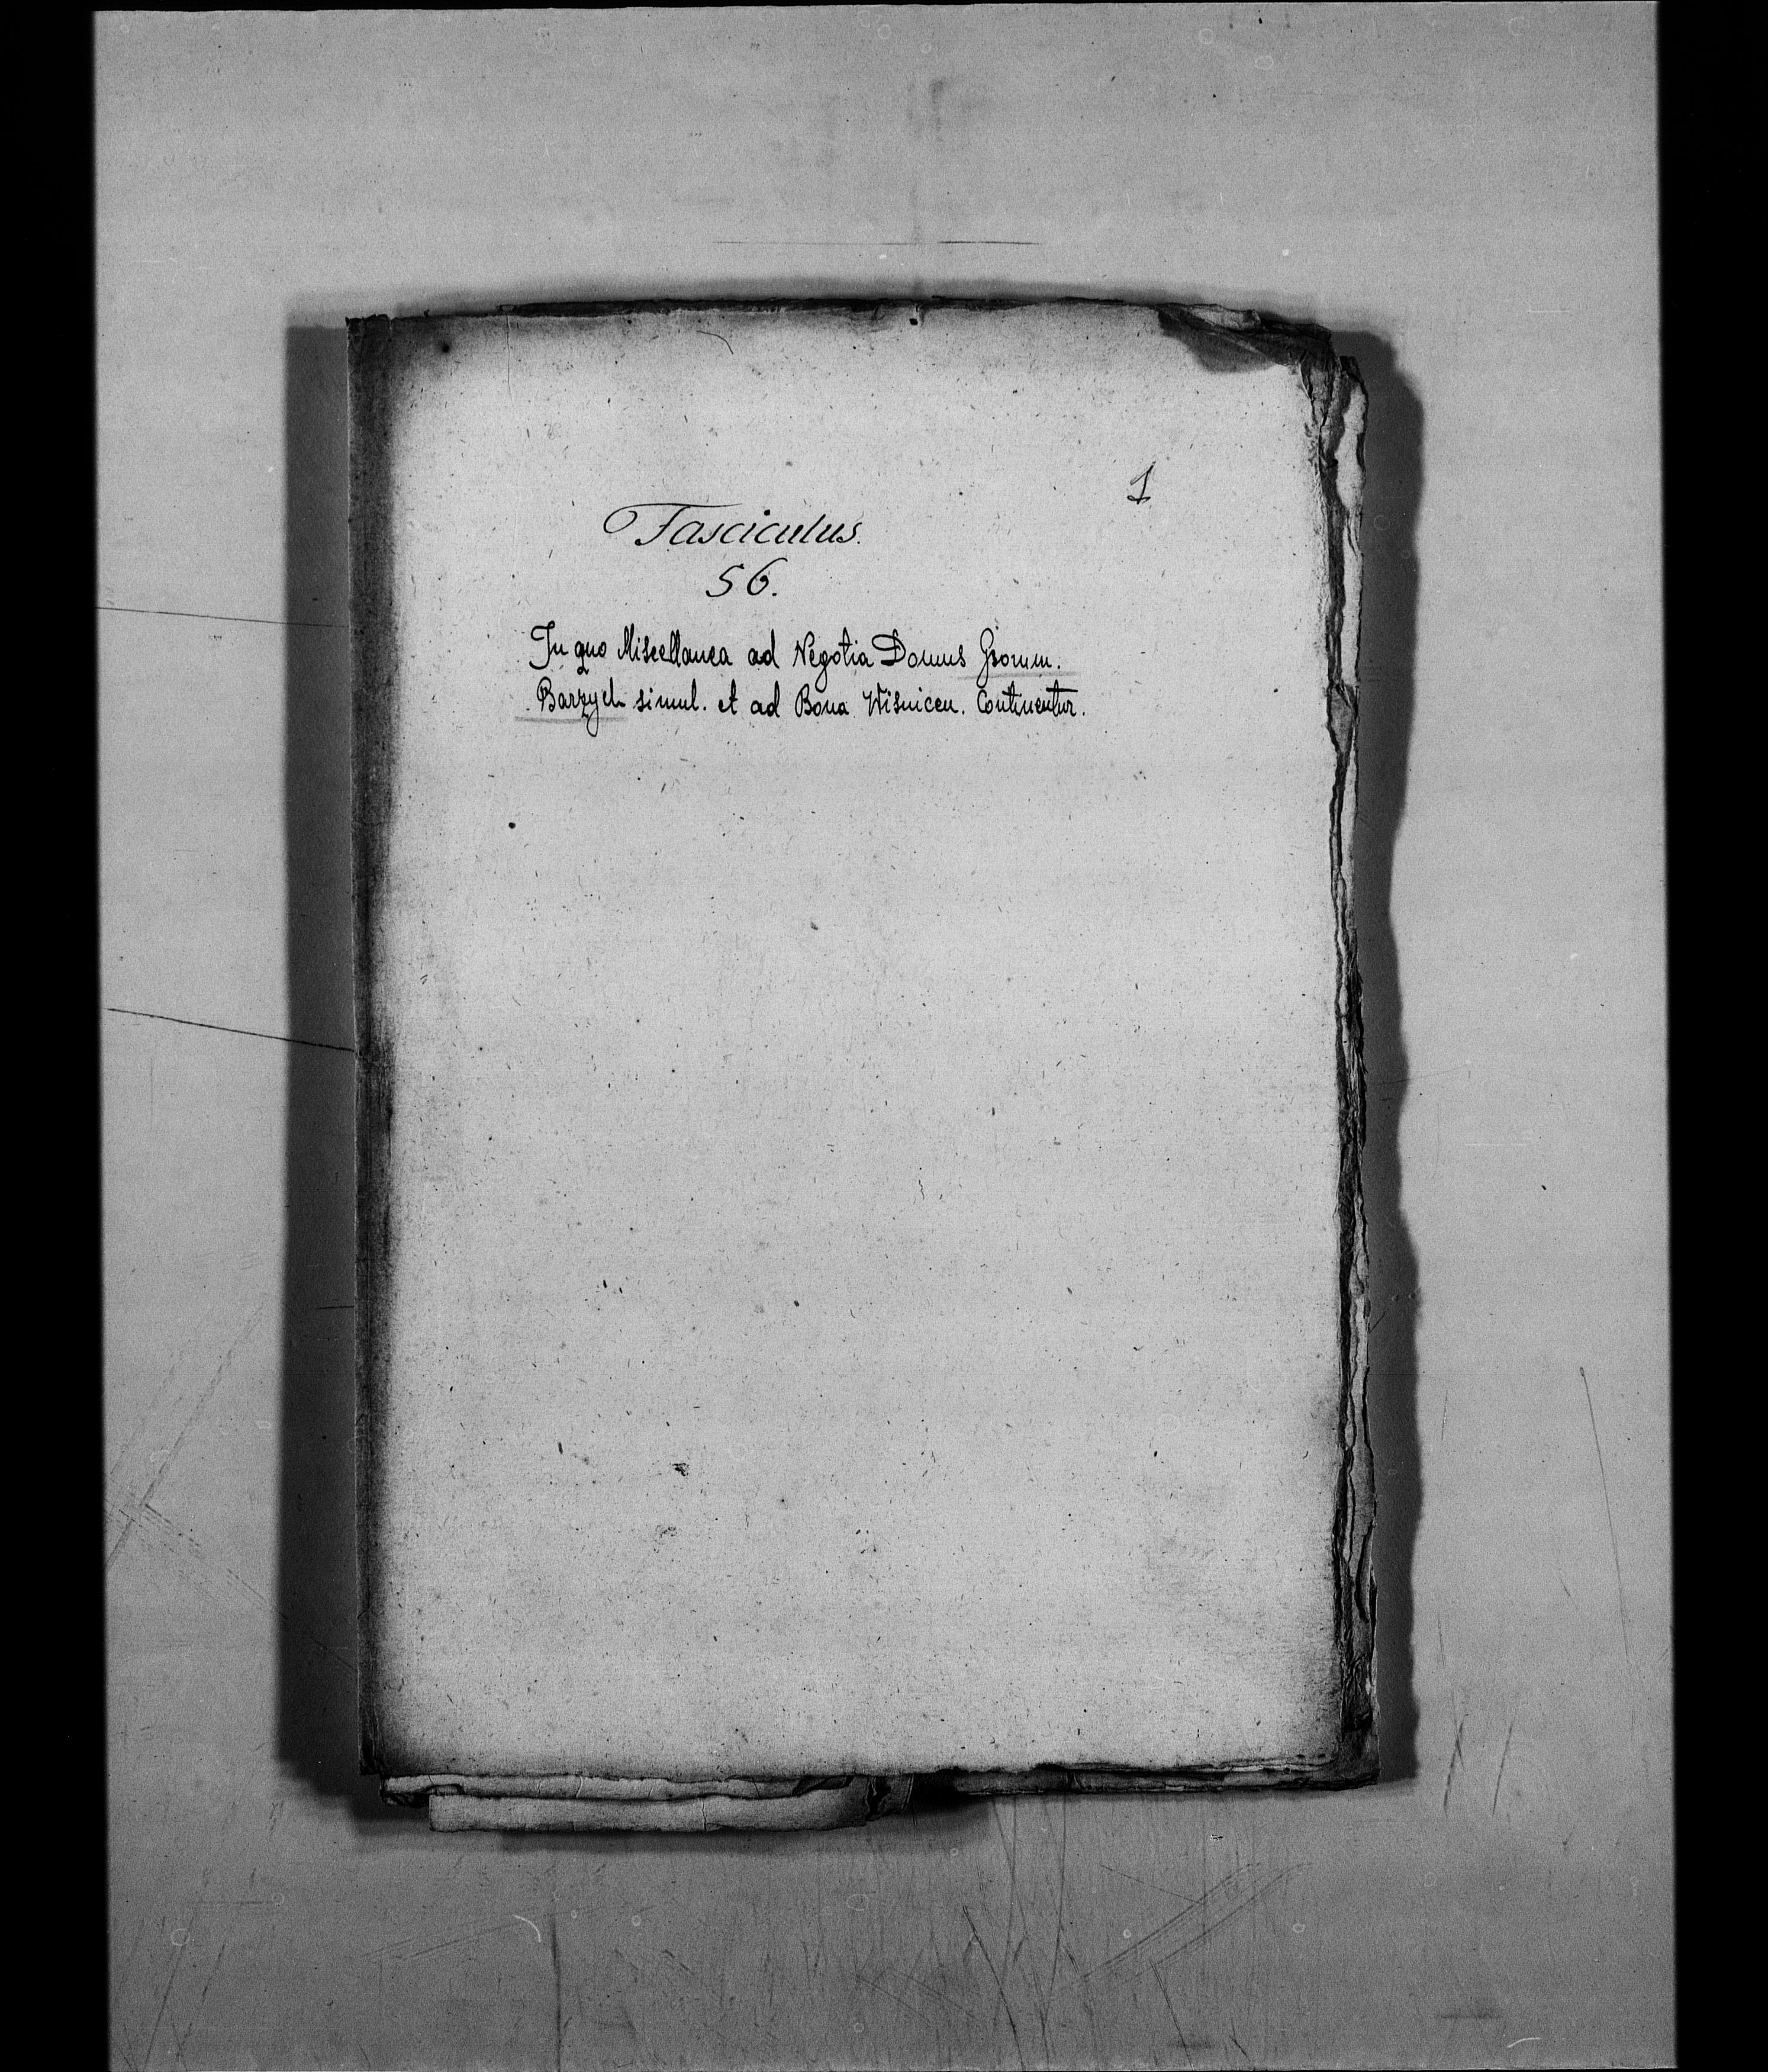 1
Fasciculus.
56.
In quo Miscellanea ad Negotia Domus Gsomm.
Barzych simul. et ad Bona Wisnicen. Continentur.